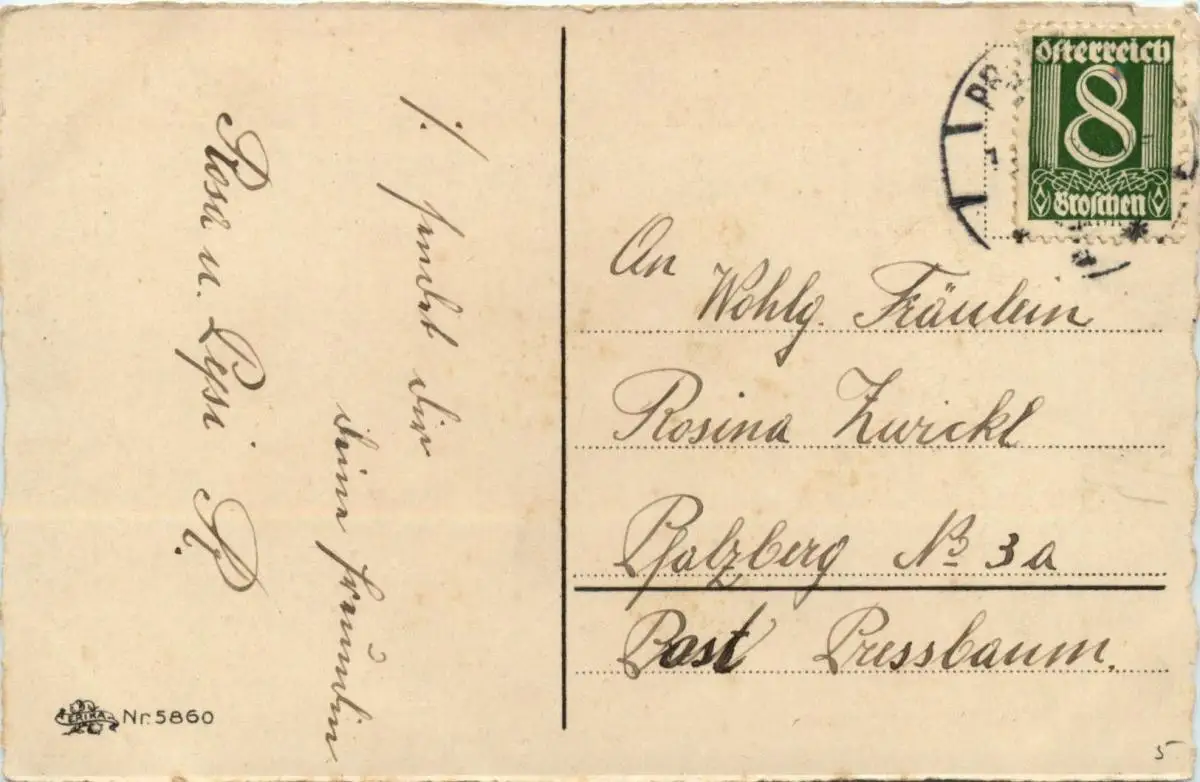 j. sendet dir
deine Freundin
Rosa u. Pepi P.
An
Wohlg. Fräulein
Rosina Zwickl
Pfalzberg No 3a
Post Pressbaum.
Österreich
8
Groschen
PR
ERIKA
Nr. 5860
5